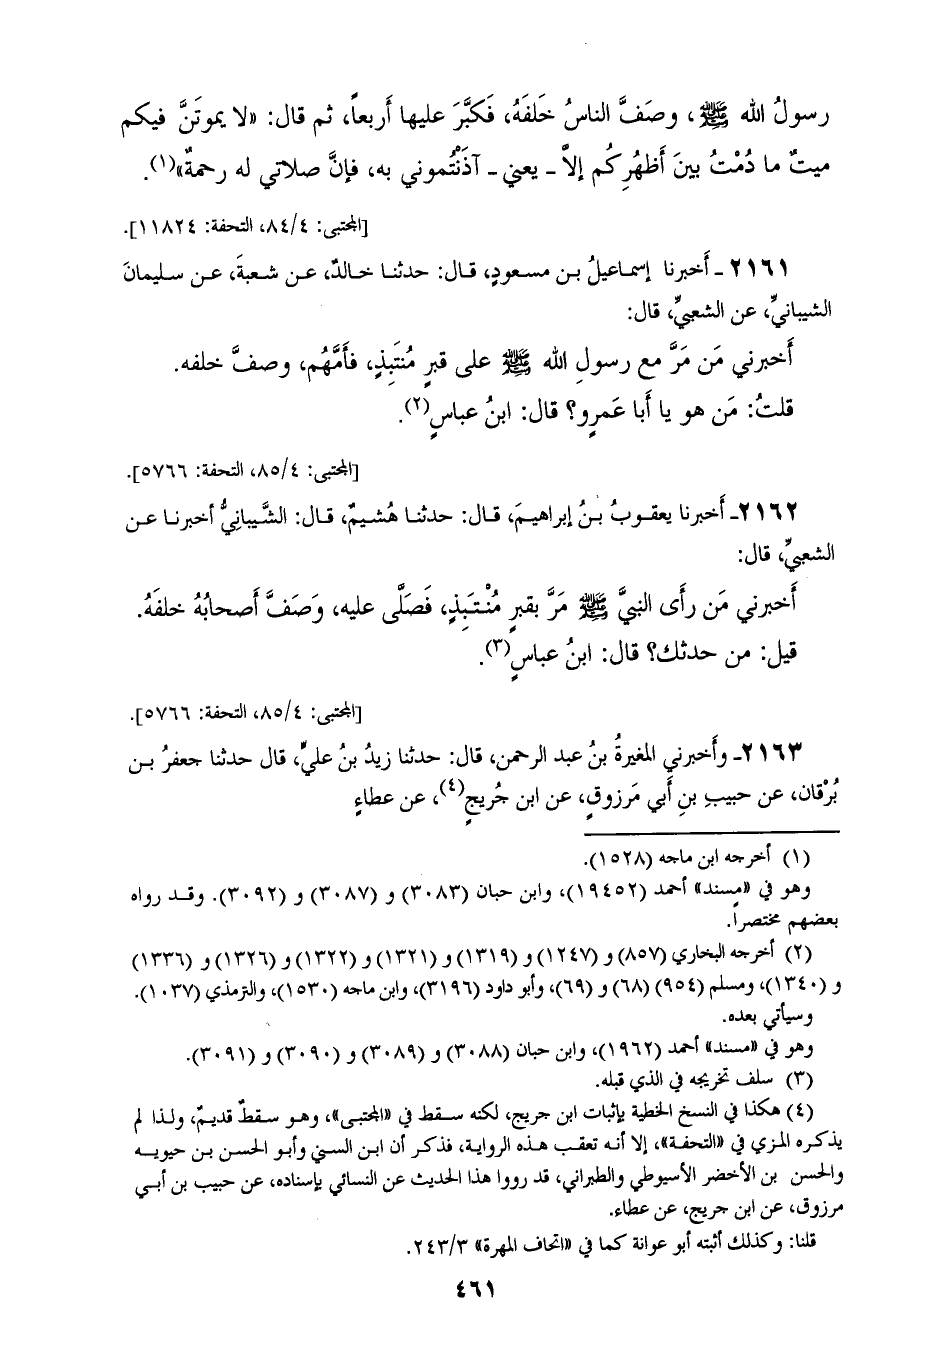 رسولُ الله ﷺ، وصَفَّ الناسُ خَلفَهُ، فَكبَّرَ عليها أَربعاً، ثم قال: «لا يموتَنَّ فيكم
ميتٌ ما دُمْتُ بينَ أَظهُرِكُم إلاَّ ـ يعني ـ آذَنْتُموني به، فإنَّ صلاتي له رحمةٌ»(١).
[المجتبى: ٨٤/٤، التحفة: ١١٨٢٤].
٢١٦١ ـ أَخبرنا إسماعيلُ بن مسعودٍ، قال: حدثنا خالدٌ، عن شعبةَ، عن سليمانَ
الشيبانيِّ، عن الشعبيِّ، قال:
أَخبرني مَن مَرَّ مع رسولِ الله ﷺ على قبرٍ مُنتَبِذٍ، فأَمَّهُم، وصفَّ خلفه.
قلتُ: مَن هو يا أَبا عَمرٍو؟ قال: ابنُ عباسٍ(٢).
[المجتبى: ٨٥/٤، التحفة: ٥٧٦٦].
٢١٦٢ـ أَخبرنا يعقوبُ بنُ إبراهيمَ، قال: حدثنا هُشيمٌ، قال: الشَّيبانيُّ أخبرنا عن
الشعبيِّ، قال:
أَخبرني مَن رأَى النبيَّ ﷺ مَرَّ بقبرٍ مُنْتَبِذٍ، فَصَلَّى عليه، وَصَفَّ أَصحابُهُ خلفَهُ.
قيل: من حدثك؟ قال: ابنُ عباسٍ(٣).
[المجتبى: ٨٥/٤، التحفة: ٥٧٦٦].
٢١٦٣ـ وأَخبرني المغيرةُ بنُ عبد الرحمن، قال: حدثنا زيدُ بنُ عليٍّ، قال حدثنا جعفرُ بن
بُرْقان، عن حبيبِ بنِ أَبي مَرزوقٍ، عن ابن جُريجٍ(٤)، عن عطاءٍ
(١) أخرجه ابن ماجه (١٥٢٨).
وهو في «مسند» أحمد (١٩٤٥٢)، وابن حبان (٣٠٨٣) و (٣٠٨٧) و (٣٠٩٢). وقد رواه
بعضهم مختصراً.
(٢) أخرجه البخاري (٨٥٧) و (١٢٤٧) و (١٣١٩) و (١٣٢١) و (١٣٢٢) و (١٣٢٦) و (١٣٣٦)
و (١٣٤٠)، ومسلم (٩٥٤) (٦٨) و (٦٩)، وأبو داود (٣١٩٦)، وابن ماجه (١٥٣٠)، والترمذي (١٠٣٧).
وسيأتي بعده.
وهو في «مسند» أحمد (١٩٦٢)، وابن حبان (٣٠٨٨) و (٣٠٨٩) و (٣٠٩٠) و (٣٠٩١).
(٣) سلف تخريجه في الذي قبله.
(٤) هكذا في النسخ الخطية بإثبات ابن جريج، لكنه سقط في «المجتبى»، وهو سقطٌ قديمٌ، ولذا لم
يذكره المزي في «التحفة»، إلا أنه تعقب هذه الرواية، فذكر أن ابن السني وأبو الحسن بن حيويه
والحسن بن الأخضر الأسيوطي والطبراني، قد رووا هذا الحديث عن النسائي بإسناده، عن حبيب بن أبي
مرزوق، عن ابن جريج، عن عطاء.
قلنا: وكذلك أثبته أبو عوانة كما في «اتحاف المهرة» ٢٤٣/٣.
٤٦١